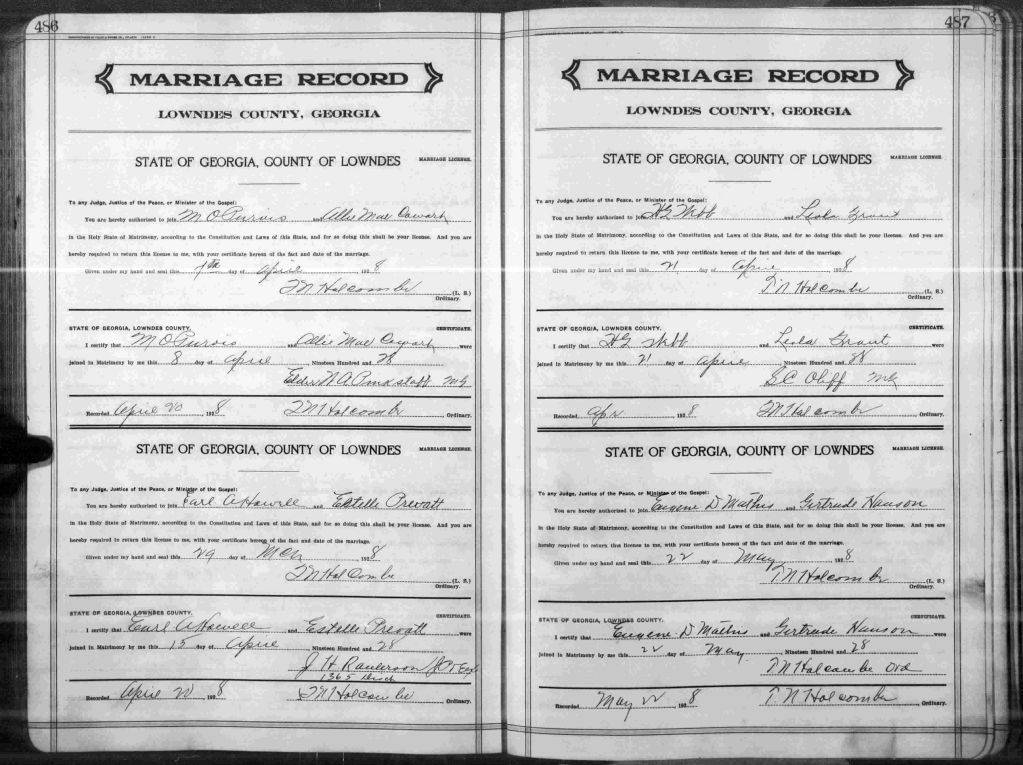 486
MARRIAGE RECORD
LOWNDES COUNTY, GEORGIA
STATE OF GEORGIA, COUNTY OF LOWNDES MARRIAGE LICENSE.
To any Judge, Justice of the Peace, or Minister of the Gospel:
You are hereby authorized to join M O Purvis and Allie Mae Cowart
in the Holy State of Matrimony, according to the Constitution and Laws of this State, and for so doing this shall be your license. And you are
hereby required to return this license to me, with your certificate hereon of the fact and date of the marriage.
Given under my hand and seal this 7th day of April 1928
T N Holcombe (L. S.)
Ordinary.
STATE OF GEORGIA, LOWNDES COUNTY. CERTIFICATE.
I certify that M O Purvis and Allie Mae Cowart were
joined in Matrimony by me this 8 day of April Nineteen Hundred and 28
Elder W A Pinkstaff MG
Recorded April 20 1928 T N Holcombe Ordinary.
STATE OF GEORGIA, COUNTY OF LOWNDES MARRIAGE LICENSE.
To any Judge, Justice of the Peace, or Minister of the Gospel:
You are hereby authorized to join Earl A Howell and Estelle Prevatt
in the Holy State of Matrimony, according to the Constitution and Laws of this State, and for so doing this shall be your license. And you are
hereby required to return this license to me, with your certificate hereon of the fact and date of the marriage.
Given under my hand and seal this 29 day of Mch 1928
T N Holcombe (L. S.)
Ordinary.
STATE OF GEORGIA, LOWNDES COUNTY. CERTIFICATE.
I certify that Earl A Howell and Estelle Prevatt were
joined in Matrimony by me this 15 day of April Nineteen Hundred and 28
J H Raulerson
1365 Disct
Recorded April 20 1928 T N Holcombe Ordinary.
487
MARRIAGE RECORD
LOWNDES COUNTY, GEORGIA
STATE OF GEORGIA, COUNTY OF LOWNDES MARRIAGE LICENSE.
To any Judge, Justice of the Peace, or Minister of the Gospel:
You are hereby authorized to join H G Webb and Leola Grant
in the Holy State of Matrimony, according to the Constitution and Laws of this State, and for so doing this shall be your license. And you are
hereby required to return this license to me, with your certificate hereon of the fact and date of the marriage.
Given under my hand and seal this 21 day of April 1928
T. N Holcombe (L. S.)
Ordinary.
STATE OF GEORGIA, LOWNDES COUNTY. CERTIFICATE.
I certify that H G Webb and Leola Grant were
joined in Matrimony by me this 21 day of April Nineteen Hundred and 28
S C Oliff MG
Recorded Apr 1928 T N Holcombe Ordinary.
STATE OF GEORGIA, COUNTY OF LOWNDES MARRIAGE LICENSE.
To any Judge, Justice of the Peace, or Minister of the Gospel:
You are hereby authorized to join Eugene D Mathis and Gertrude Hanson
in the Holy State of Matrimony, according to the Constitution and Laws of this State, and for so doing this shall be your license. And you are
hereby required to return this license to me, with your certificate hereon of the fact and date of the marriage.
Given under my hand and seal this 22 day of May 1928
T. N Holcombe (L. S.)
Ordinary.
STATE OF GEORGIA, LOWNDES COUNTY. CERTIFICATE.
I certify that Eugene D Mathis and Gertrude Hanson were
joined in Matrimony by me this 22 day of May Nineteen Hundred and 28
T. N Holcombe Ord
Recorded May 22 1928 T. N Holcombe Ordinary.